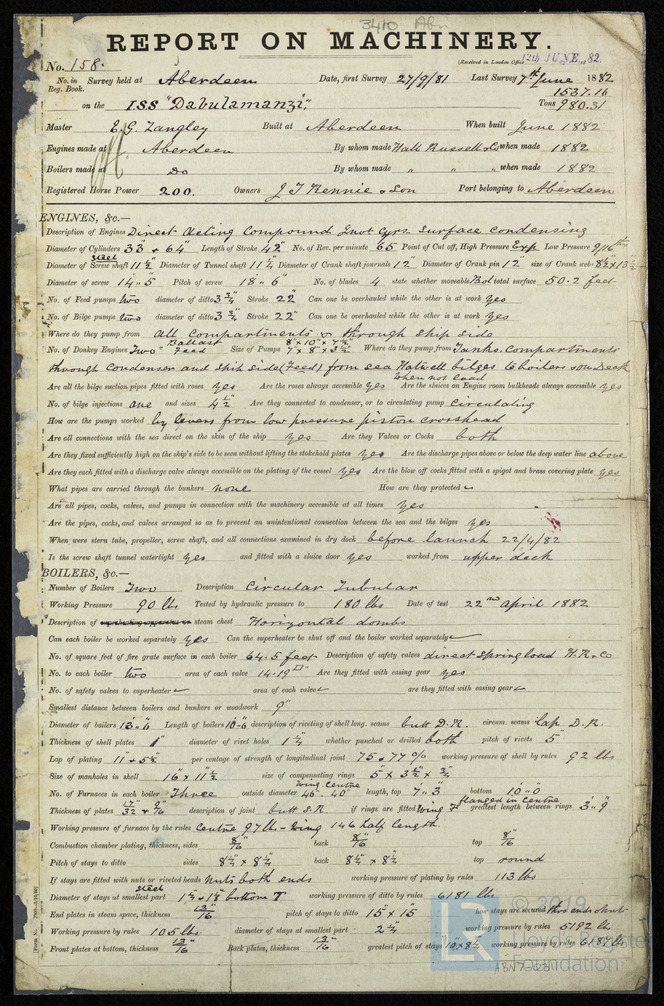 3410 Abn
REPORT ON MACHINERY.
No. 158. (Received in London Office 12th JUNE 82.
No. in Survey held at Aberdeen Date, first Survey 27/9/81 Last Survey 7th June 1882
Reg. Book. 1537.16
on the ISS "Dabulamanzi". Tons 980.31
Master E.G. Zangley Built at Aberdeen When built June 1882
Engines made at Aberdeen By whom made Hall Russell & Co when made 1882
Boilers made at Do By whom made " " when made 1882
Registered Horse Power 200. Owners J T Rennie & Son Port belonging to Aberdeen
ENGINES, &c.—
Description of Engines Direct Acting Compound Invt Cyrs Surface condensing
Diameter of Cylinders 33" & 64" Length of Stroke 42" No. of Rev. per minute 65 Point of Cut off, High Pressure Exp Low Pressure 9/16ths
Diameter of steel Screw shaft 11½" Diameter of Tunnel shaft 11¼" Diameter of Crank shaft journals 12" Diameter of Crank pin 12" size of Crank webs 8½" x 13½"
Diameter of screw 14"5 Pitch of screw 18"6" No. of blades 4 state whether moveable Bol total surface 50.2 feet
No. of Feed pumps two diameter of ditto 3¾" Stroke 22" Can one be overhauled while the other is at work yes
No. of Bilge pumps two diameter of ditto 3¾" Stroke 22" Can one be overhauled while the other is at work yes
Where do they pump from all Compartments & through ship side
No. of Donkey Engines Two Ballast Feed Size of Pumps 8" x 10" x 7½" 7" x 8" x 3½" Where do they pump from Tanks. Compartments
through Condenser and ship side (Feed) from sea Hotwell bilges to boilers & on Deck
Are all the bilge suction pipes fitted with roses yes Are the roses always accessible yes when not load Are the sluices on Engine room bulkheads always accessible yes
No. of bilge injections one and sizes 4½" Are they connected to condenser, or to circulating pump circulating
How are the pumps worked by levers from low pressure piston crosshead
Are all connections with the sea direct on the skin of the ship yes Are they Valves or Cocks both
Are they fixed sufficiently high on the ship's side to be seen without lifting the stokehold plates yes Are the discharge pipes above or below the deep water line above
Are they each fitted with a discharge valve always accessible on the plating of the vessel yes Are the blow off cocks fitted with a spigot and brass covering plate yes
What pipes are carried through the bunkers none How are they protected
Are all pipes, cocks, valves, and pumps in connection with the machinery accessible at all times yes
Are the pipes, cocks, and valves arranged so as to prevent an unintentional connection between the sea and the bilges yes
When were stern tube, propeller, screw shaft, and all connections examined in dry dock before launch 22/4/82
Is the screw shaft tunnel watertight yes and fitted with a sluice door yes worked from upper deck
BOILERS, &c.—
Number of Boilers Two Description Circular Tubular
Working Pressure 90 lbs Tested by hydraulic pressure to 180 lbs Date of test 22nd April 1882
Description of steam chest Horizontal dombs
Can each boiler be worked separately yes Can the superheater be shut off and the boiler worked separately
No. of square feet of fire grate surface in each boiler 64.5 feet Description of safety valves direct spring load H.R & Co
No. to each boiler two area of each valve 14.19 □" Are they fitted with easing gear yes
No. of safety valves to superheater area of each valve are they fitted with easing gear
Smallest distance between boilers and bunkers or woodwork 9"
Diameter of boilers 13"6 Length of boilers 10"6 description of riveting of shell long. seams butt D.R. circum. seams Lap D.R.
Thickness of shell plates 1" diameter of rivet holes 1¼" whether punched or drilled both pitch of rivets 5"
Lap of plating 11" & 5¾" per centage of strength of longitudinal joint 75 & 77% working pressure of shell by rules 92 lbs
Size of manholes in shell 16" x 11½" size of compensating rings 5" x 3½" x ¾"
No. of Furnaces in each boiler Three outside diameter wing 46" Centre 40" length, top 7"3 bottom 10"0
Thickness of plates 17/32" & 9/16" description of joint butt S.R. if rings are fitted Wing T flanged in Centre greatest length between rings 3"9
Working pressure of furnace by the rules Centre 97 lbs - wing 146 half length.
Combustion chamber plating, thickness, sides 8/16" back 8/16" top 8/16"
Pitch of stays to ditto sides 8¼" x 8¼" back 8¼" x 8¼" top round
If stays are fitted with nuts or riveted heads nuts both ends working pressure of plating by rules 113 lbs
Diameter of stays at smallest part steel 1¼ & 1⅛ bottom T working pressure of ditto by rules 6181 lbs
End plates in steam space, thickness 13/16" pitch of stays to ditto 15" x 15" stays are secured
Working pressure by rules 105 lbs diameter of stays at smallest part 2¼" working pressure by rules 5192 lbs
Front plates at bottom, thickness 13/16" Back plates, thickness 13/16" greatest pitch of stays working pressure by rules 6187 lbs
© 2019
LR
Foundation